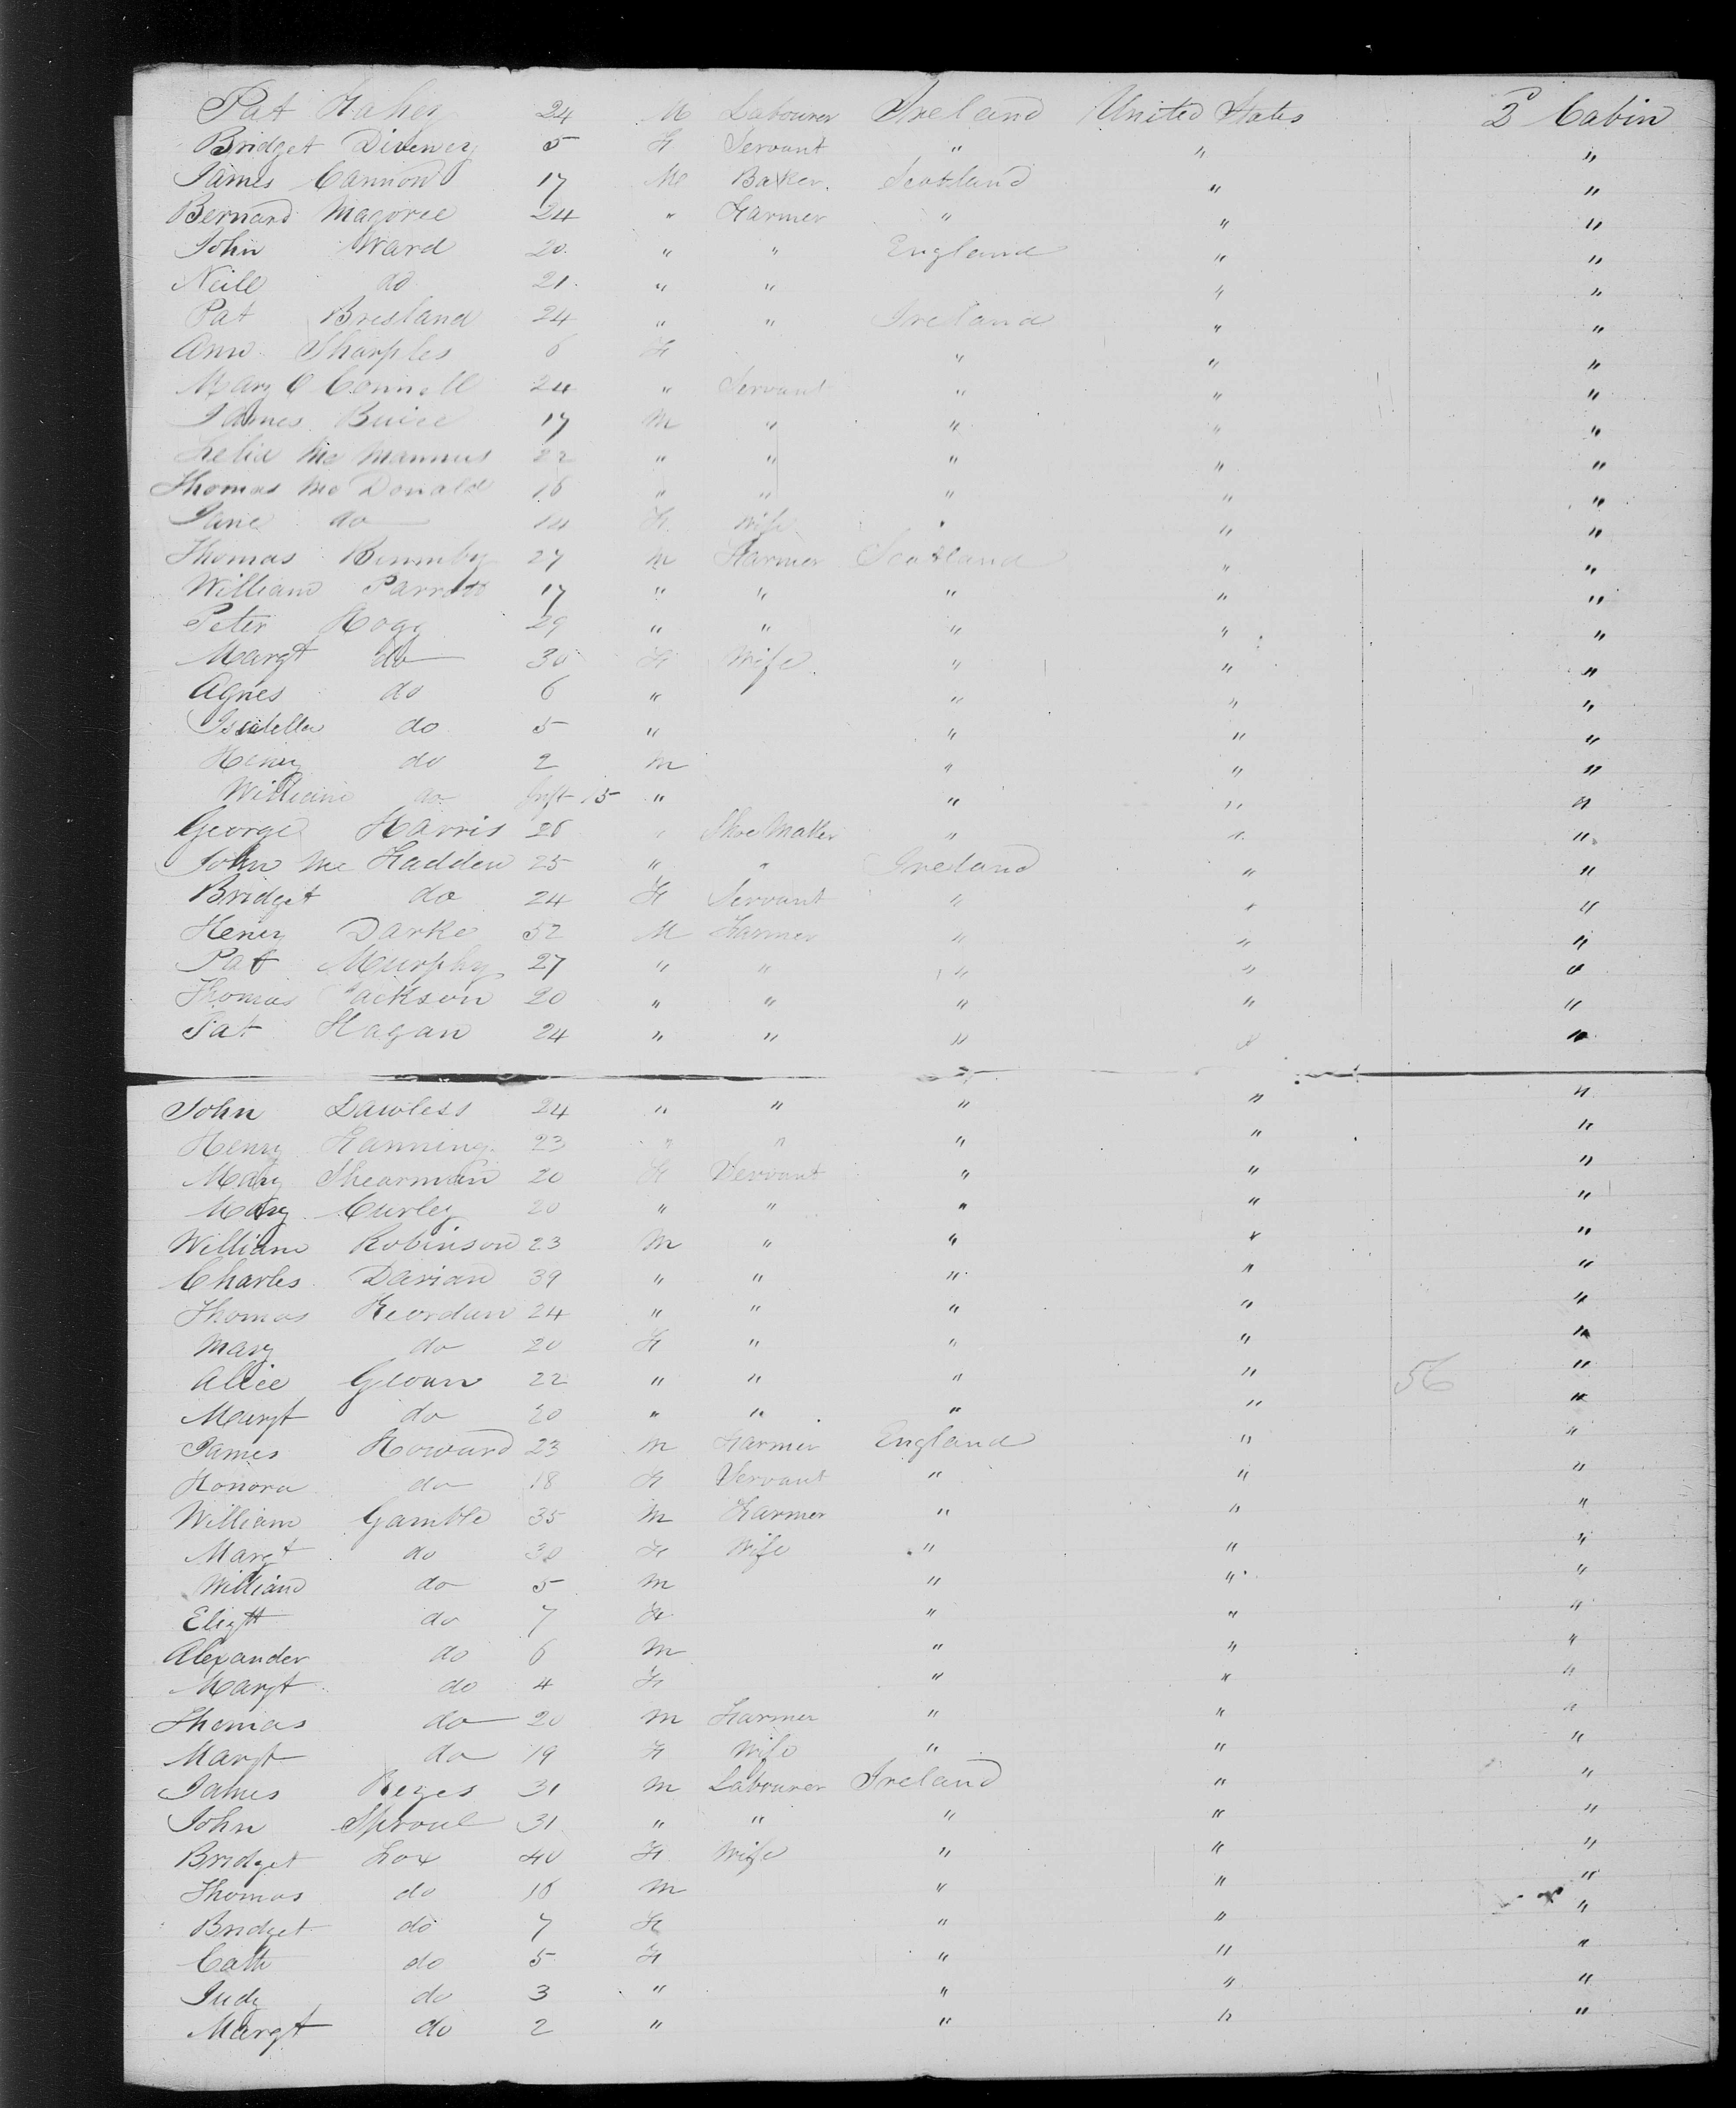 Pat Fahey 24 M Labourer Ireland United States 2d Cabin
Bridget Diveney 5 F Servant " " "
James Cannon 17 M Baker Scotland " "
Bernard Magoree 24 " Farmer " " "
John Ward 20 " " England " "
Neill do 21 " " " "
Pat Bresland 24 " " Ireland " "
Ann Sharples 6 F " " "
Mary O Connell 24 " Servant " " "
James 17 M " " " "
Mc Mannus 22 " " " " "
Thomas Mc Donald 18 " " " " "
Jane do F Wife " " "
Thomas 27 M Farmer Scotland " "
William Parrott 17 " " " " "
Peter Hogg 29 " " " " "
Margt do 30 F Wife " " "
Agnes do 6 " " " "
Isabella do 5 " " " "
Henry do 2 M " " "
William do Inft " " " "
George Harris 28 " Shoe Maker " " "
John Mc Fadden 25 " " Ireland " "
Bridget do 24 F Servant " " "
Henry Darke 52 M Farmer " " "
Pat Murphy 27 " " " " "
Thomas Jackson 20 " " " " "
Pat Hagan 24 " " " " "
John Lawless 24 " " " " "
Henry Fanning 23 " " " " "
Mary Shearman 20 F Servant " " "
Mary Curley 20 " " " " "
William Robinson 23 M " " " "
Charles Darian 39 " " " " "
Thomas Reordan 24 " " " " "
Mary do 20 F " " " "
Alice 22 " " " " 56 "
Margt do 20 " " " " "
James Howard 23 M Farmer England " "
Honora do 18 F Servant " " "
William Gamble 35 M Farmer " " "
Margt do 30 F Wife " " "
William do 5 M " " "
Elizth do 7 F " " "
Alexander do 6 M " " "
Margt do 4 F " " "
Thomas do 20 M Farmer " " "
Margt do 19 F Wife " " "
James Keyes 31 M Labourer Ireland " "
John Sproul 31 " " " " "
Bridget Fox 40 F Wife " " "
Thomas do 18 M " " "
Bridget do 7 F " " "
Cath do 5 F " " "
Judy do 3 " " " "
Margt do 2 " " " "